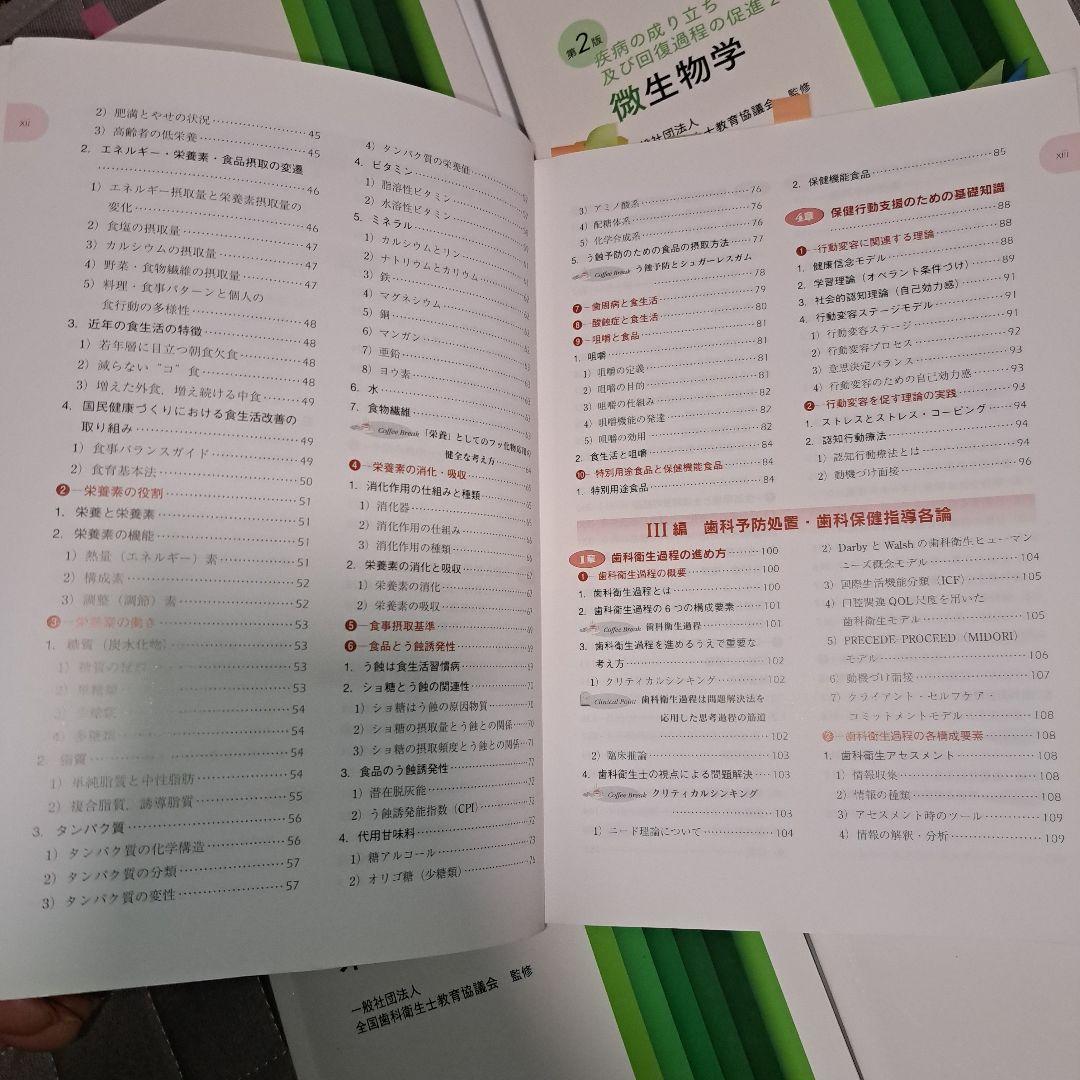 第2版
疾病の成り立ち
及び回復過程の促進 2
微生物学
一般社団法人
士教育協議会 監修
xii
2）肥満とやせの状況 45
3）高齢者の低栄養 45
2．エネルギー・栄養素・食品摂取の変遷
46
1）エネルギー摂取量と栄養素摂取量の
変化 46
2）食塩の摂取量 47
3）カルシウムの摂取量 47
4）野菜・食物繊維の摂取量 47
5）料理・食事パターンと個人の
食行動の多様性 48
3．近年の食生活の特徴 48
1）若年層に目立つ朝食欠食 48
2）減らない“コ”食 48
3）増えた外食，増え続ける中食 49
4．国民健康づくりにおける食生活改善の
取り組み 49
1）食事バランスガイド 49
2）食育基本法 50
❷－栄養素の役割 51
1．栄養と栄養素 51
2．栄養素の機能 51
1）熱量（エネルギー）素 51
2）構成素 52
3）調整（調節）素 52
❸－栄養素の働き 53
1．糖質（炭水化物） 53
1）糖質の 53
2）単糖類 53
3） 54
4）多糖類 54
2．脂質 54
1）単純脂質と中性脂肪 54
2）複合脂質，誘導脂質 55
3．タンパク質 56
1）タンパク質の化学構造 56
2）タンパク質の分類 57
3）タンパク質の変性 57
4）タンパク質の栄養価
4．ビタミン
1）脂溶性ビタミン
2）水溶性ビタミン
5．ミネラル
1）カルシウムとリン
2）ナトリウムとカリウム
3）鉄
4）マグネシウム
5）銅
6）マンガン
7）亜鉛
8）ヨウ素
6．水
7．食物繊維
Coffee Break 「栄養」としてのフッ化物応用の
健全な考え方 64
❹－栄養素の消化・吸収
1．消化作用の仕組みと種類
1）消化器
2）消化作用の仕組み
3）消化作用の種類
2．栄養素の消化と吸収
1）栄養素の消化
2）栄養素の吸収
❺－食事摂取基準
❻－食品とう蝕誘発性
1．う蝕は食生活習慣病
2．ショ糖とう蝕の関連性
1）ショ糖はう蝕の原因物質
2）ショ糖の摂取量とう蝕との関係
3）ショ糖の摂取頻度とう蝕との関係 71
3．食品のう蝕誘発性
1）潜在脱灰能
2）う蝕誘発能指数（CPI）
4．代用甘味料
1）糖アルコール
2）オリゴ糖（少糖類）
3）アミノ酸系 76
4）配糖体系 76
5）化学合成系 76
5．う蝕予防のための食品の摂取方法 77
Coffee Break う蝕予防とシュガーレスガム
78
❼－歯周病と食生活 79
❽－酸蝕症と食生活 80
❾－咀嚼と食品 81
1．咀嚼 81
1）咀嚼の定義 81
2）咀嚼の目的 81
3）咀嚼の仕組み 82
4）咀嚼機能の発達 82
5）咀嚼の効用 82
2．食生活と咀嚼 84
❿－特別用途食品と保健機能食品 84
1．特別用途食品 84
xiii
2．保健機能食品 85
4章 保健行動支援のための基礎知識
88
❶－行動変容に関連する理論 88
1．健康信念モデル 88
2．学習理論（オペラント条件づけ） 89
3．社会的認知理論（自己効力感） 91
4．行動変容ステージモデル 91
1）行動変容ステージ 91
2）行動変容プロセス 92
3）意思決定バランス 93
4）行動変容のための自己効力感 93
❷－行動変容を促す理論の実践 93
1．ストレスとストレス・コーピング 94
2．認知行動療法 94
1）認知行動療法とは 94
2）動機づけ面接 96
III編 歯科予防処置・歯科保健指導各論
1章 歯科衛生過程の進め方 100
❶－歯科衛生過程の概要 100
1．歯科衛生過程とは 100
2．歯科衛生過程の6つの構成要素 101
Coffee Break 歯科衛生過程 101
3．歯科衛生過程を進めるうえで重要な
考え方 102
1）クリティカルシンキング 102
Clinical Point 歯科衛生過程は問題解決法を
応用した思考過程の筋道
102
2）臨床推論 103
4．歯科衛生士の視点による問題解決 103
Coffee Break クリティカルシンキング
103
1）ニード理論について 104
2）DarbyとWalshの歯科衛生ヒューマン
ニーズ概念モデル 104
3）国際生活機能分類（ICF） 105
4）口腔関連QOL尺度を用いた
歯科衛生モデル 105
5）PRECEDE-PROCEED（MIDORI）
モデル 106
6）動機づけ面接 107
7）クライアント・セルフケア・
コミットメントモデル 108
❷－歯科衛生過程の各構成要素 108
1．歯科衛生アセスメント 108
1）情報収集 108
2）情報の種類 108
3）アセスメント時のツール 109
4）情報の解釈・分析 109
一般社団法人
全国歯科衛生士教育協議会 監修